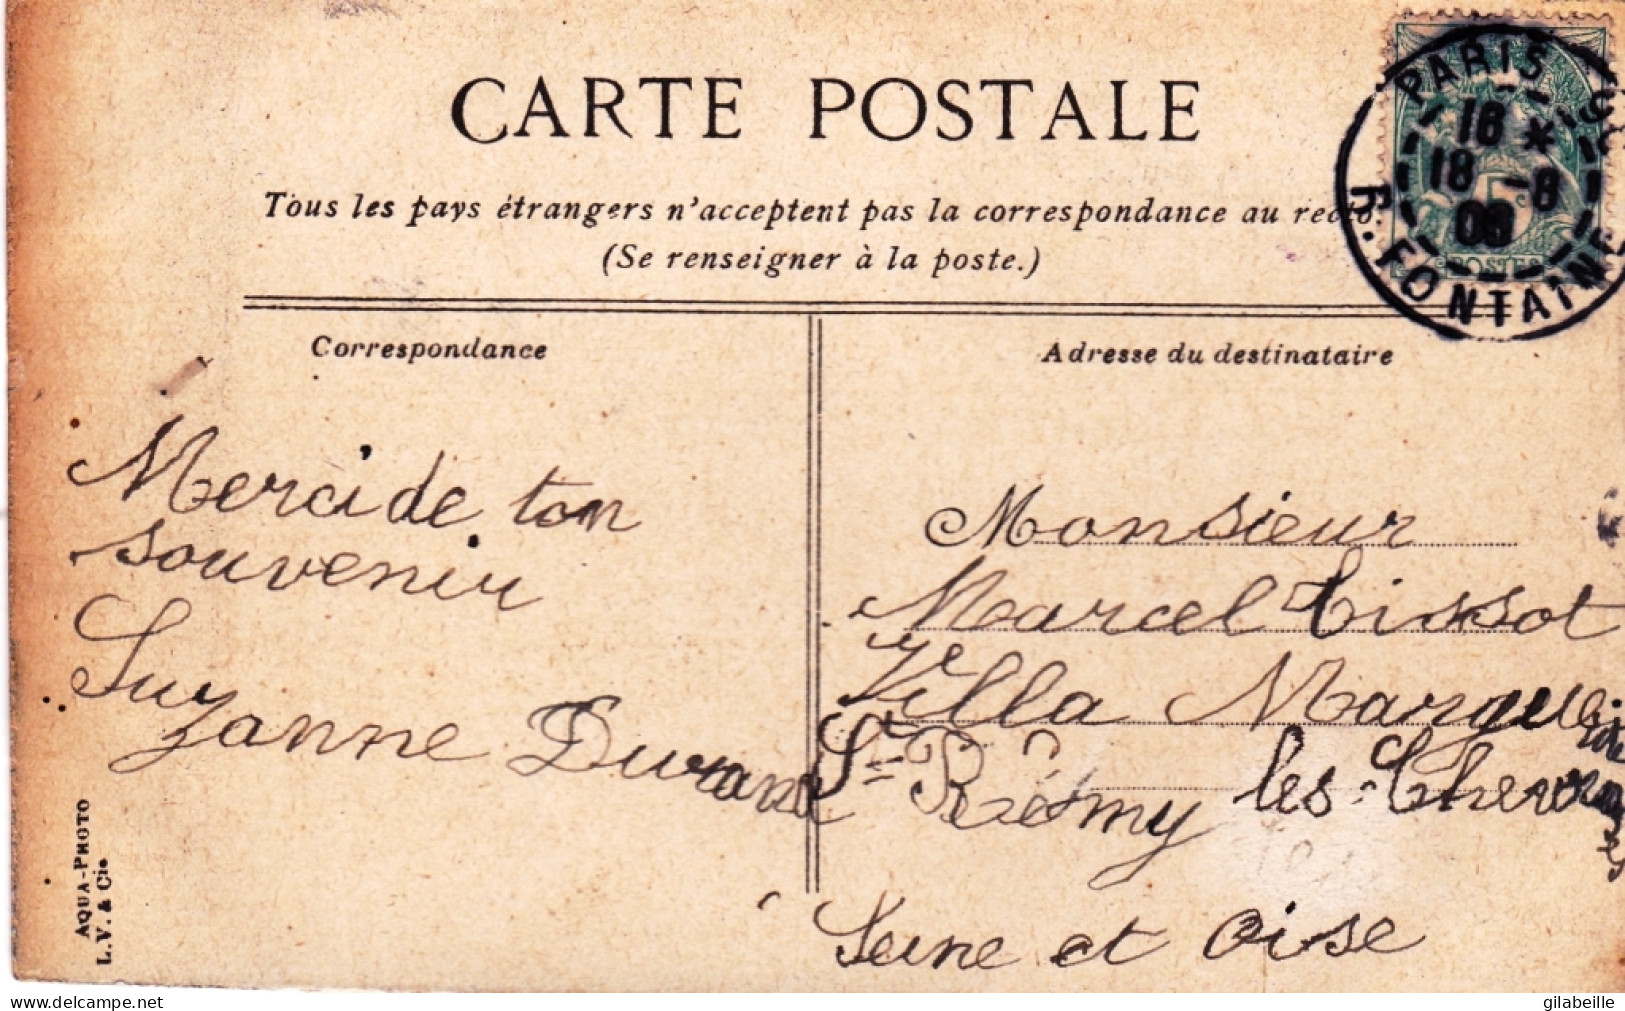 CARTE POSTALE
Tous les pays étrangers n'acceptent pas la correspondance au recto.
(Se renseigner à la poste.)
PARIS
16 *
18 -8
R. FONTAINE
5c
POSTES
Correspondance
Adresse du destinataire
Merci de ton
souvenir
Suzanne Durand
Monsieur
Marcel Tissot
Villa Marguerite
St Rémy les Chevreuses
Seine et Oise
AQUA-PHOTO
L.V. & Cie
gilabeille